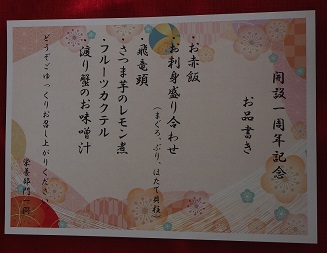 開設一周年記念
お品書き
・お赤飯
・お刺身盛り合わせ
（まぐろ、ぶり、ほたて貝柱）
・飛竜頭
・さつま芋のレモン煮
・フルーツカクテル
・渡り蟹のお味噌汁
どうぞごゆっくりお召し上がりください。
栄養部門一同